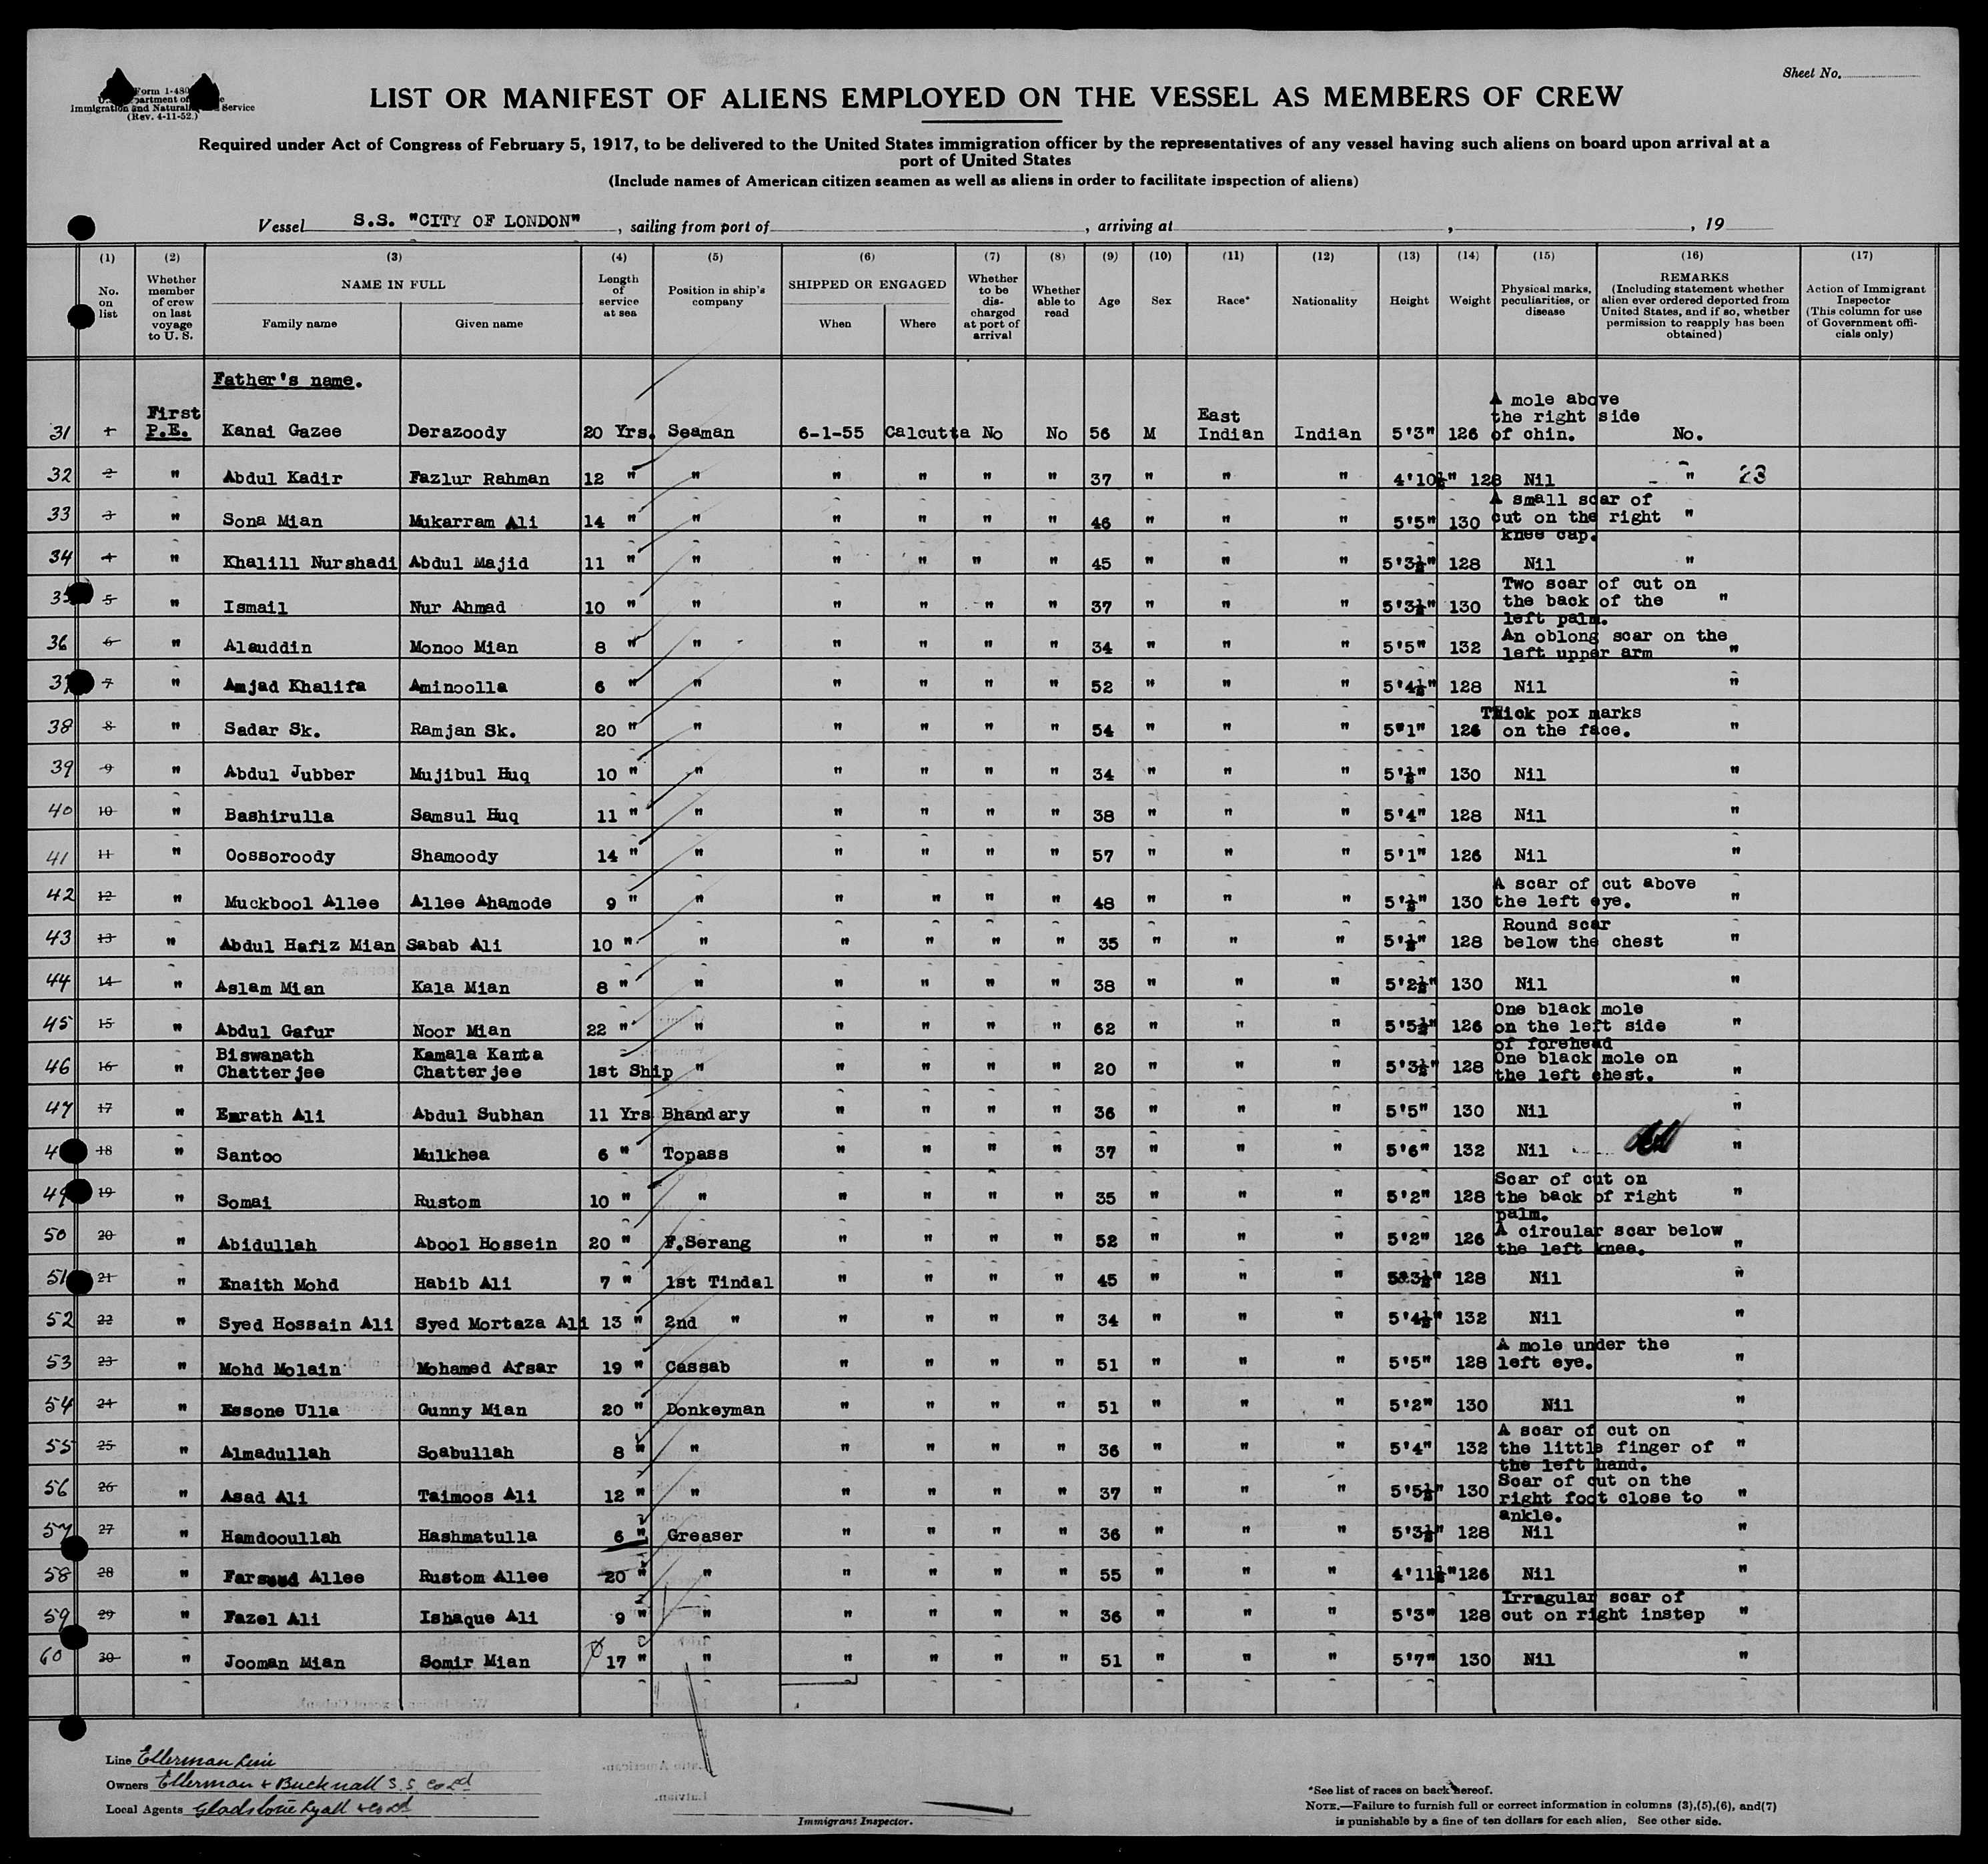 Form I-480
Immigration and Naturalization Service
(Rev. 4-11-52.)
Sheet No.
LIST OR MANIFEST OF ALIENS EMPLOYED ON THE VESSEL AS MEMBERS OF CREW
Required under Act of Congress of February 5, 1917, to be delivered to the United States immigration officer by the representatives of any vessel having such aliens on board upon arrival at a
port of United States
(Include names of American citizen seamen as well as aliens in order to facilitate inspection of aliens)
Vessel S.S. "CITY OF LONDON", sailing from port of , arriving at , , 19
(1) (2) (3) (4) (5) (6) (7) (8) (9) (10) (11) (12) (13) (14) (15) (16) (17)
No. on list
Whether member of crew on last voyage to U. S.
NAME IN FULL
Family name
Given name
Length of service at sea
Position in ship's company
SHIPPED OR ENGAGED
When
Where
Whether to be discharged at port of arrival
Whether able to read
Age
Sex
Race*
Nationality
Height
Weight
Physical marks, peculiarities, or disease
REMARKS
(Including statement whether alien ever ordered deported from United States, and if so, whether permission to reapply has been obtained)
Action of Immigrant Inspector
(This column for use of Government officials only)
Father's name.
31 1 First P.E. Kanai Gazee Derazoody 20 Yrs. Seaman 6-1-55 Calcutta No No 56 M East Indian Indian 5'3" 126 A mole above the right side of chin. No.
32 2 " Abdul Kadir Fazlur Rahman 12 " " " " " " 37 " " " 4'10½" 128 Nil " 23
33 3 " Sona Mian Mukarram Ali 14 " " " " " " 46 " " " 5'5" 130 A small scar of cut on the right knee cap. "
34 4 " Khalill Nurshadi Abdul Majid 11 " " " " " " 45 " " " 5'3½" 128 Nil "
35 5 " Ismail Nur Ahmad 10 " " " " " " 37 " " " 5'3½" 130 Two scar of cut on the back of the left palm. "
36 6 " Alauddin Monoo Mian 8 " " " " " " 34 " " " 5'5" 132 An oblong scar on the left upper arm "
37 7 " Amjad Khalifa Aminoolla 6 " " " " " " 52 " " " 5'4½" 128 Nil "
38 8 " Sadar Sk. Ramjan Sk. 20 " " " " " " 54 " " " 5"1" 126 Thick pox marks on the face. "
39 9 " Abdul Jubber Mujibul Huq 10 " " " " " " 34 " " " 5'½" 130 Nil "
40 10 " Bashirulla Samsul Huq 11 " " " " " " 38 " " " 5'4" 128 Nil "
41 11 " Oossoroody Shamoody 14 " " " " " " 57 " " " 5'1" 126 Nil "
42 12 " Muckbool Allee Allee Ahamode 9 " " " " " " 48 " " " 5'½" 130 A scar of cut above the left eye. "
43 13 " Abdul Hafiz Mian Sabab Ali 10 " " " " " " 35 " " " 5'½" 128 Round scar below the chest "
44 14 " Aslam Mian Kala Mian 8 " " " " " " 38 " " " 5'2½" 130 Nil "
45 15 " Abdul Gafur Noor Mian 22 " " " " " " 62 " " " 5'5½" 126 One black mole on the left side of forehead "
46 16 " Biswanath Chatterjee Kamala Kanta Chatterjee 1st Ship " " " " " 20 " " " 5'3½" 128 One black mole on the left chest. "
47 17 " Emrath Ali Abdul Subhan 11 Yrs Bhandary " " " " 36 " " " 5'5" 130 Nil "
48 18 " Santoo Mulkhea 6 " Topass " " " " 37 " " " 5'6" 132 Nil "
49 19 " Somai Rustom 10 " " " " " " 35 " " " 5'2" 128 Scar of cut on the back of right palm. "
50 20 " Abidullah Abool Hossein 20 " F.Serang " " " " 52 " " " 5'2" 126 A circular scar below the left knee. "
51 21 " Enaith Mohd Habib Ali 7 " 1st Tindal " " " " 45 " " " 5'3½" 128 Nil "
52 22 " Syed Hossain Ali Syed Mortaza Ali 13 " 2nd " " " " " 34 " " " 5'4½" 132 Nil "
53 23 " Mohd Molain Mohamed Afsar 19 " Cassab " " " " 51 " " " 5'5" 128 A mole under the left eye. "
54 24 " Essone Ulla Gunny Mian 20 " Donkeyman " " " " 51 " " " 5'2" 130 Nil
55 25 " Almadullah Soabullah 8 " " " " " " 36 " " " 5'4" 132 A scar of cut on the little finger of the left hand. "
56 26 " Asad Ali Taimoos Ali 12 " " " " " " 37 " " " 5'5½" 130 Scar of cut on the right foot close to ankle. "
57 27 " Hamdooullah Hashmatulla 6 " Greaser " " " " 36 " " " 5'3½" 128 Nil "
58 28 " Allee Rustom Allee 20 " " " " " " 55 " " " 4'11½" 126 Nil "
59 29 " Fazel Ali Ishaque Ali 9 " " " " " " 36 " " " 5'3" 128 Irragular scar of cut on right instep "
60 30 " Jooman Mian Somir Mian 17 " " " " " " 51 " " " 5'7" 130 Nil "
Line Ellerman Line
Owners Ellerman & Bucknall S.S. Co Ld
Local Agents Gladstone Lyall & Co Ld
Immigrant Inspector.
*See list of races on back hereof.
NOTE.—Failure to furnish full or correct information in columns (3),(5),(6), and(7)
is punishable by a fine of ten dollars for each alien, See other side.